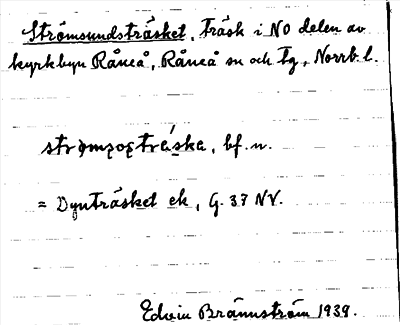 Strömsundsträsket, träsk i NO delen av
kyrkbyn Råneå, Råneå sn och tg, Norrb. l.
bf. n.
= Dynträsket ek, G. 37 NV.
Edvin Brännström 1939.